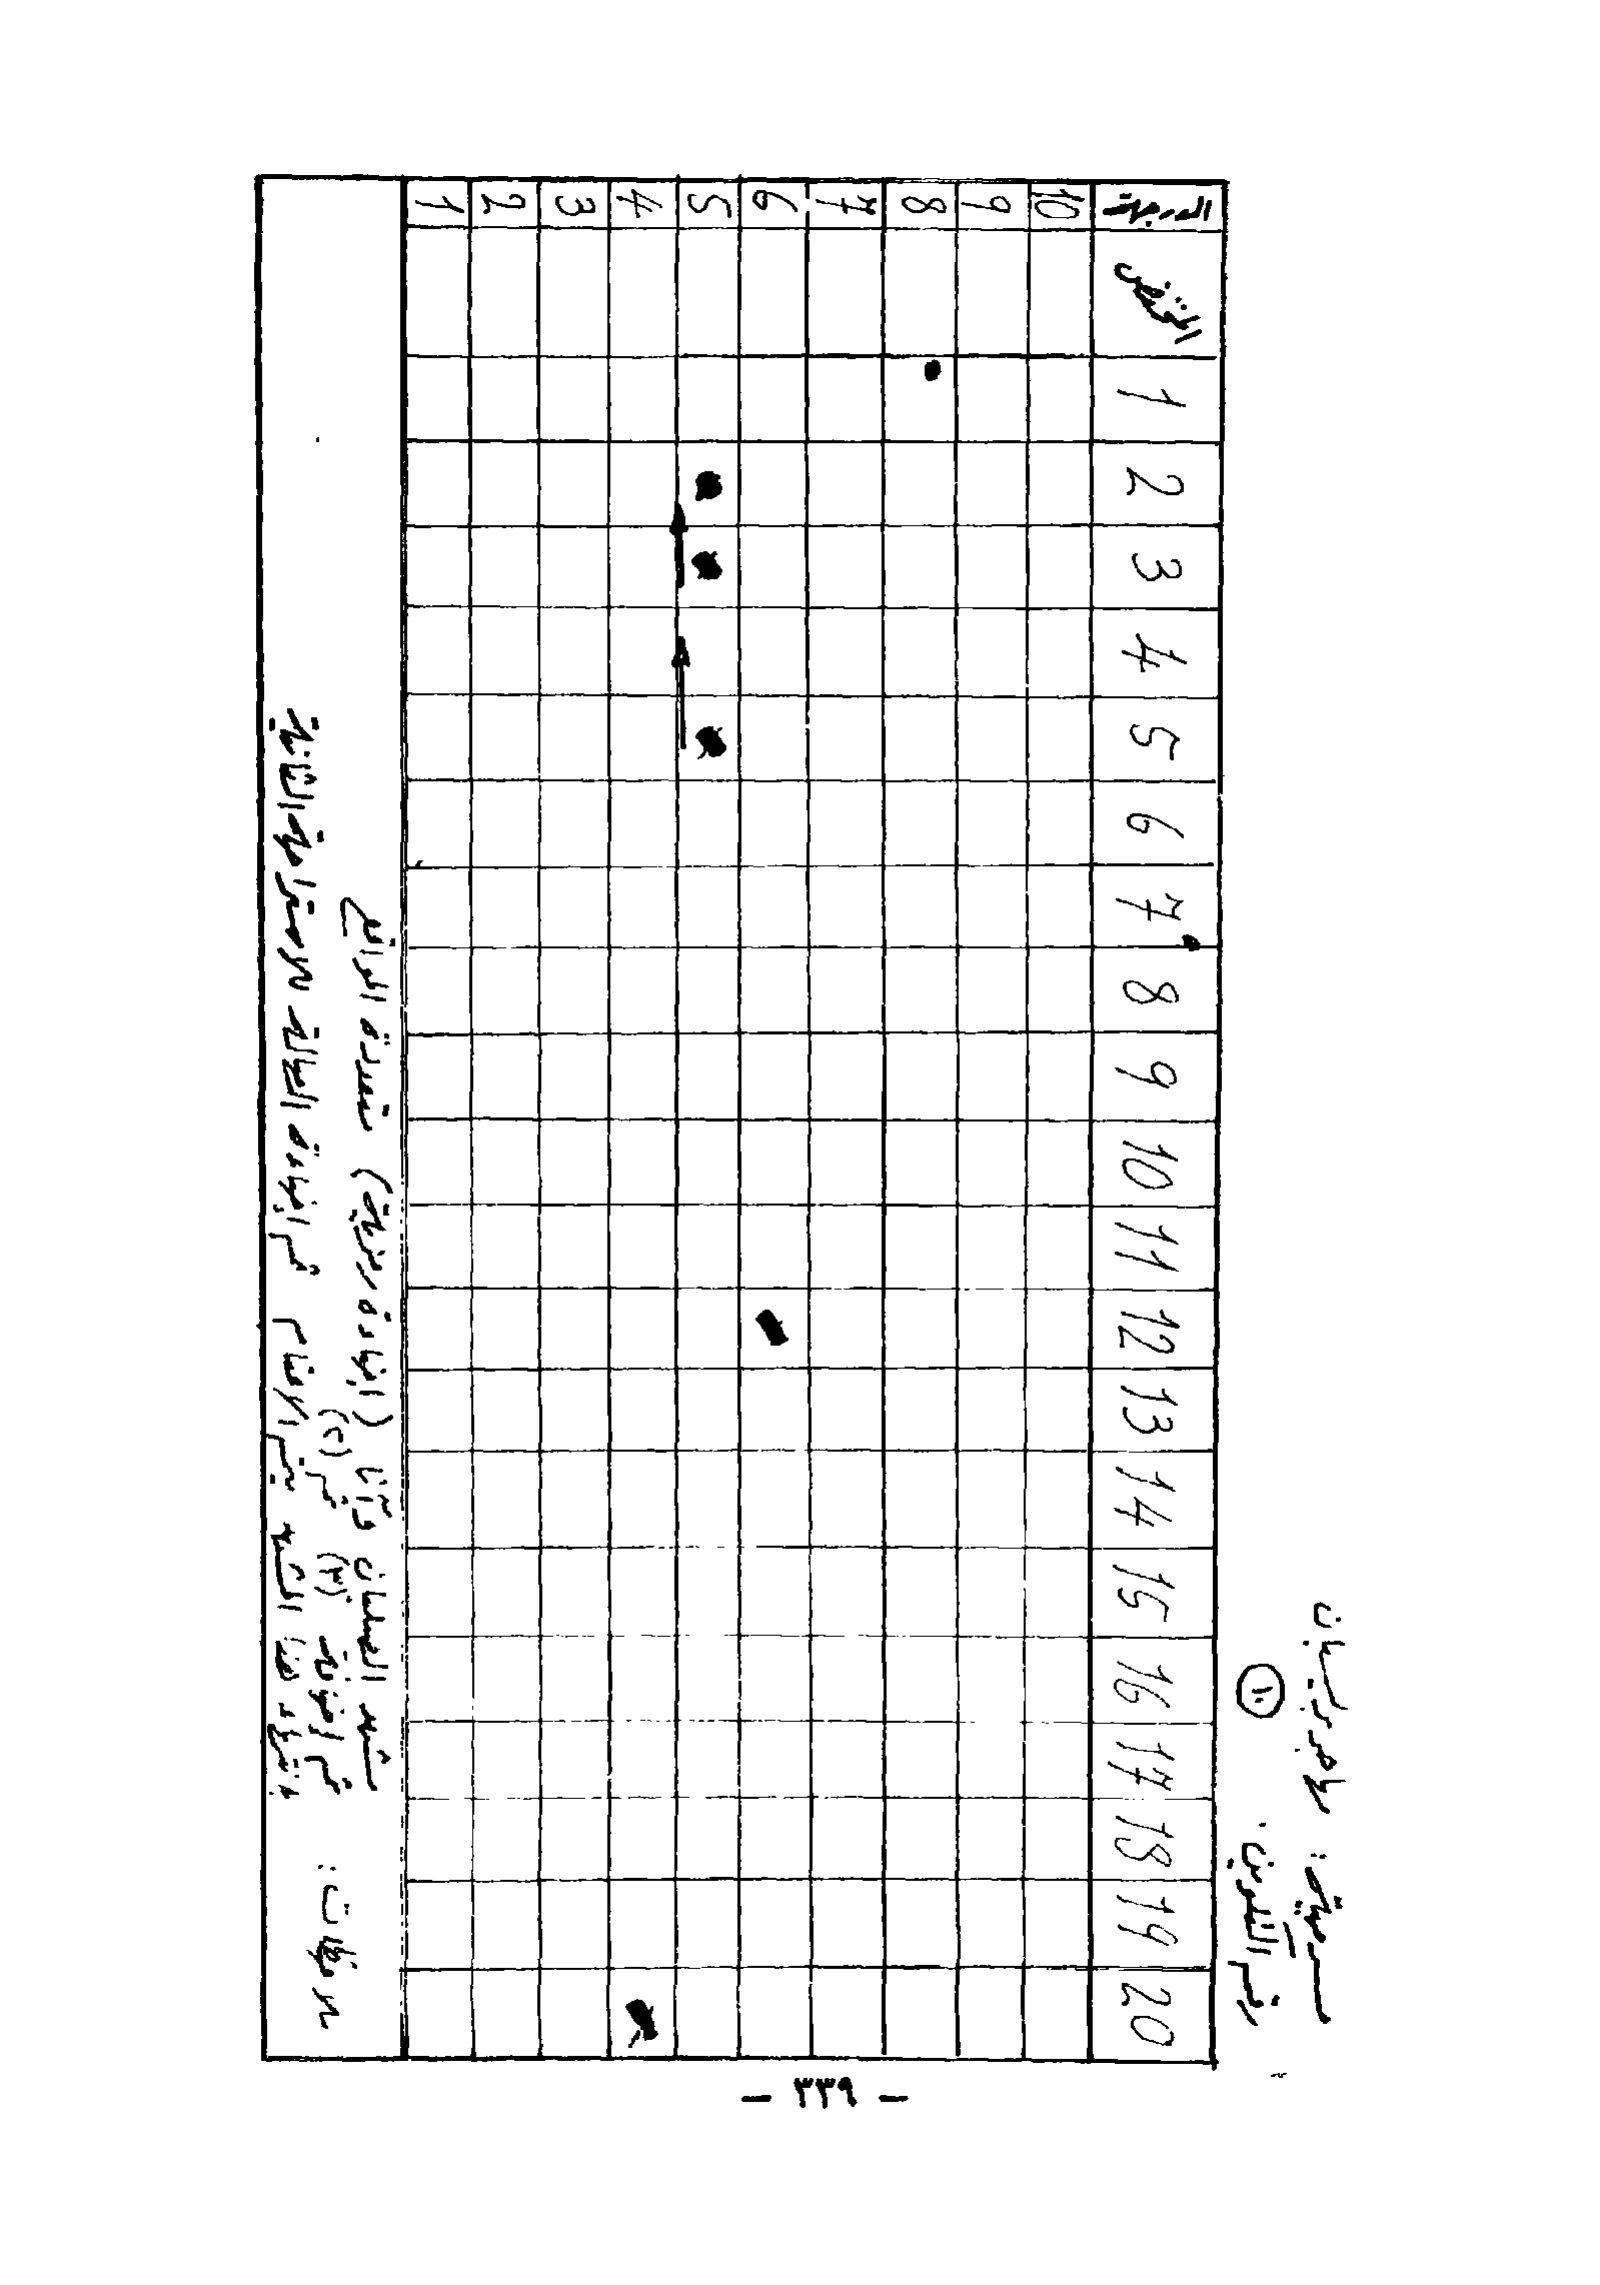 مسرحية : مهاجر بريسبان
رقم التلوين ١٠
الدرجات 10 9 8 7 6 5 4 3 2 1
المخفض
1
2
3
4
5
6
7
8
9
10
11
12
13
14
15
16
17
18
19
20
ملاحظات :
مشهد الصلبان و آنا ( إضاءة رمزية ) متعددة المواقع
ثم إضافة (٣) ثم (٢)
بانتهاء هذا المشهد يتم الإظلام ثم إضاءة الصالة للاستراحة الثانية
- ٣٣٩ -